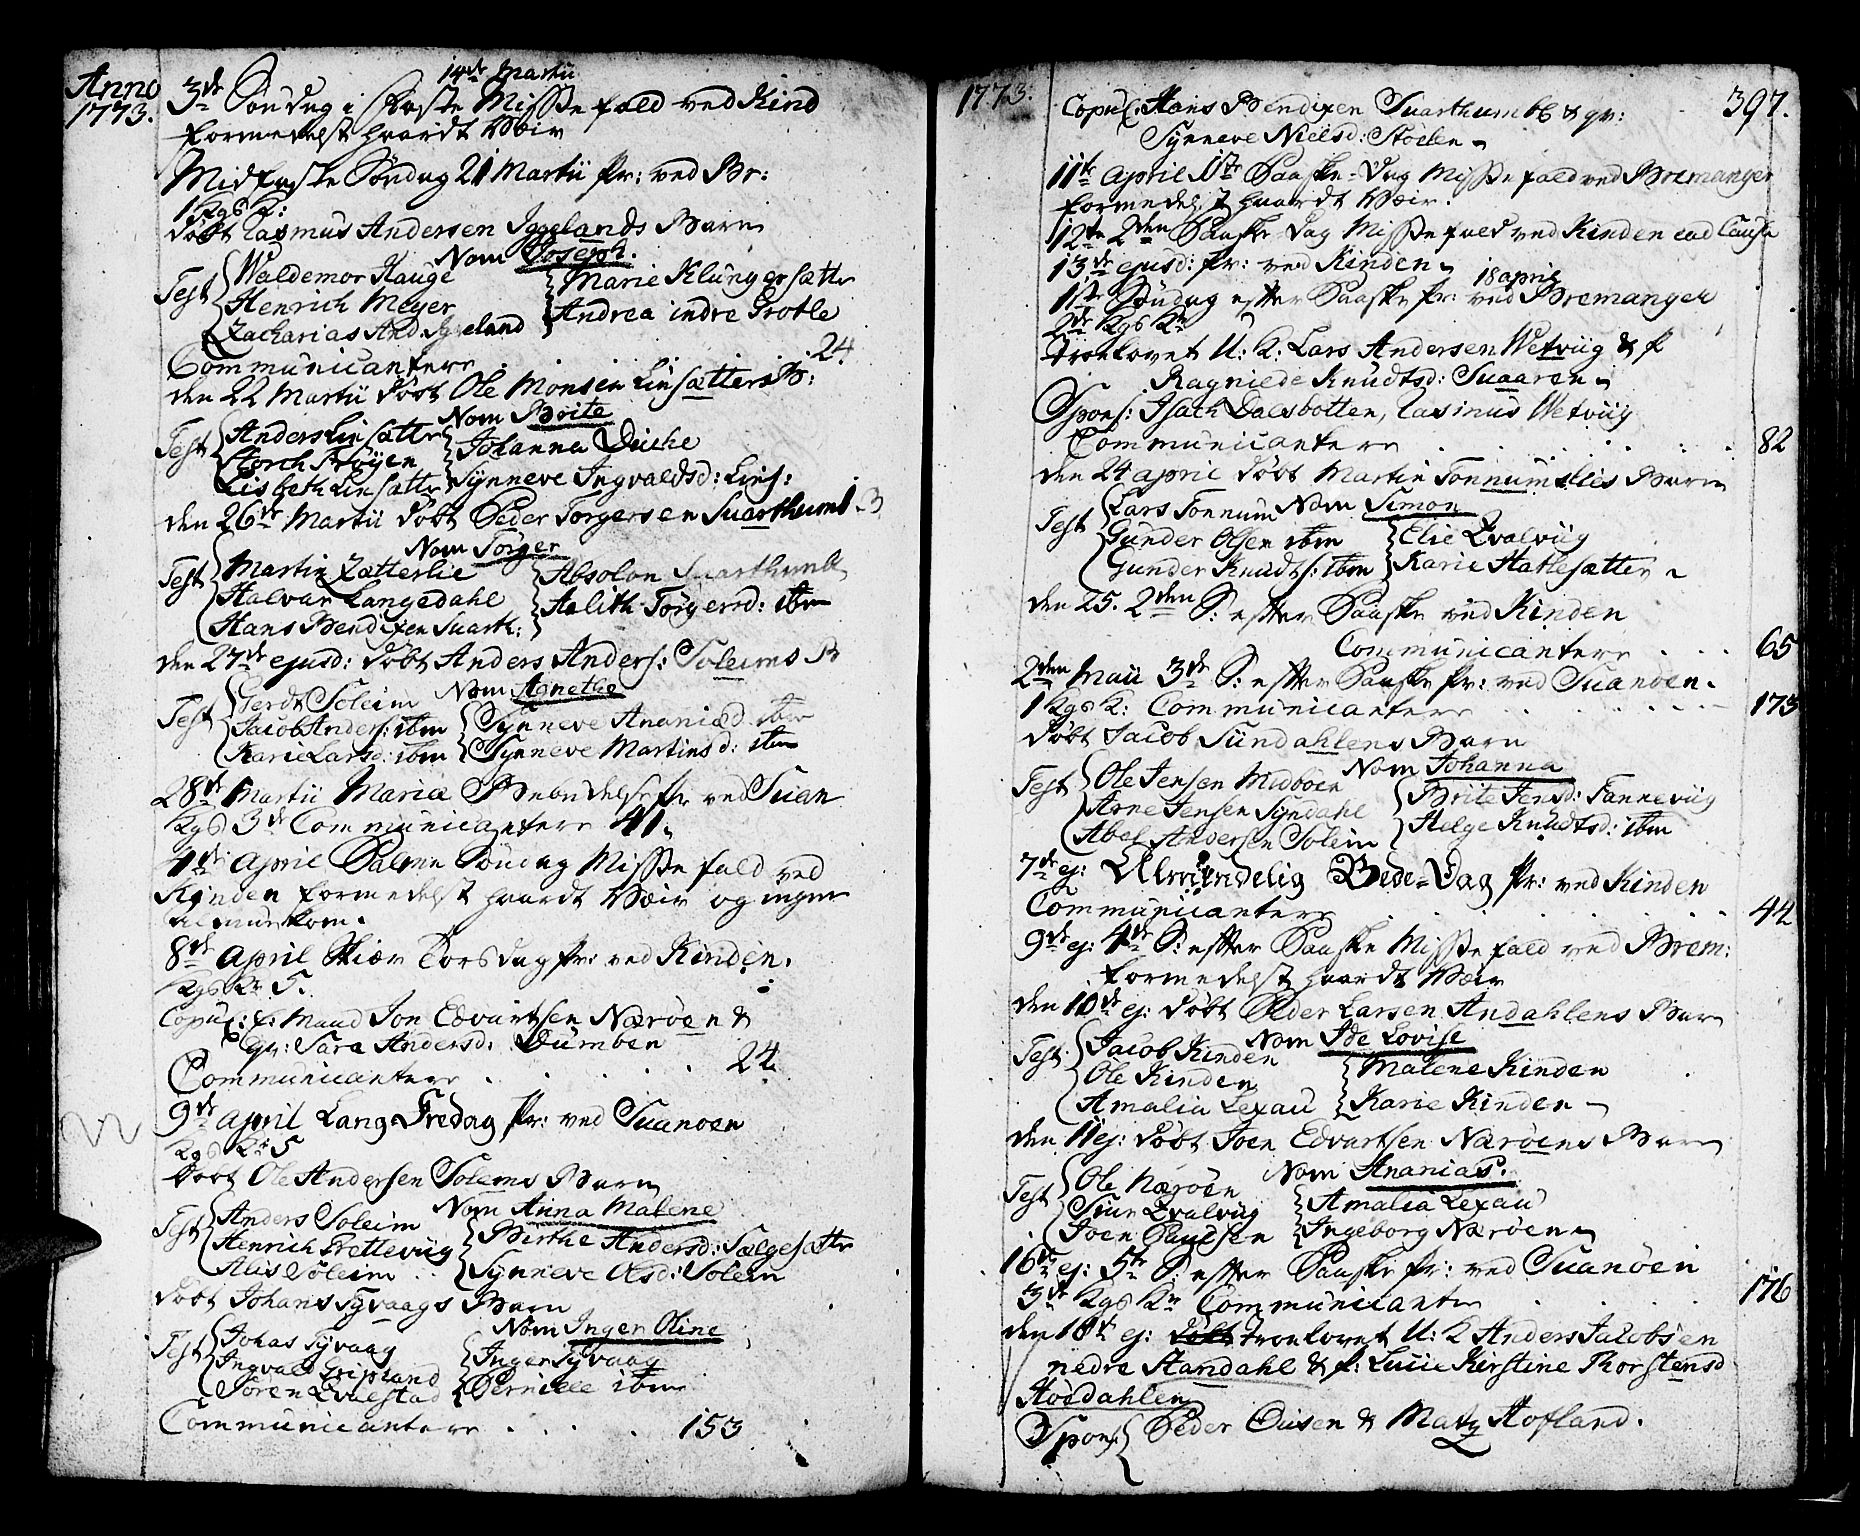 Anno
1773.
14de Martii
3de Søndag i Faste Misse fald ved Kind
formedelst haardt Veir
Midfaste Søndag 21 Martii Pr: ved Br:
1 Kgs K:
døbt Rasmus Andersen Iggelands Barn
Nom Joseph.
Test Waldemor Hauge
Henrich Meyer
Zacharias And Iggeland
Marie Klungersætter
Andrea indre Grotle
Communicantere . . . 24
den 22 Martii døbt Ole Monsen Linsætters B:
Nom Brite
Test Anders Linsætter
Storch Frøyen
Lisbeth Linsætter
Johanna
Synneve Ingvaldsd: Lins:
den 26de Martii døbt Peder Torgersen Suarthumb B
Nom Torger
Test Martin Zætterlie
Halvar Langedahl
Hans Bendixen Suarth:
Absolon Suarthumb
Aalith Torgersd: ibm
den 27de ejusd: døbt Anders Anders: Soleims B
Nom Agnethe
Test Gerdt Soleim
Jacob Anders: ibm
Karie Larsd: ibm
Synneve Ananiæd ibm
Synneve Martinsd: ibm
28de Martii Mariæ Bebudelse Pr ved Suan
Kgs 3de Communicantere 41.
4de April Palme Søndag Misse fald ved
Kinden formedelst haardt Veir og ingen
almue kom.
8de April Skiær Torsdag Pr: ved Kinden.
Kgs K: 5.
Copul: E: Mand Jon Edvartsen Nærøen &
qv: Sara Andersd: Dumben
Communicantere . . . . . 24
9de April Lang-Fredag Pr: ved Suanøen
Kgs K: 5
døbt Ole Andersen Solems Barn
Nom Anna Malene
Test Anders Soleim
Henrich Grettevüg
Alis Soleim
Birthe Andersd: Sælgesætter
Synneve Olsd: Solem
døbt Johans Tyvaags Barn
Nom Inger Oline
Test Johas Tyvaag
Ingvald Gripsland
Søren Qvalstad
Inger Tyvaag
Pernille ibm
Communicantere . . . . 153
1773. 397.
Copul: Hans Bendixen Suarthumb & qv:
Synneve Nielsd: Støelen
11te April 1ste Paaske-Dag Misse fald ved Bremanger
formedelst haardt Veir.
12te 2den Paaske Dag Misse fald ved Kinden ead Causa
13de ejusd: Pr: ved Kinden
18 april
1ste Søndag efter Paaske Pr: ved Bremanger
2de Kgs K:
troelovet U: K: Lars Andersen Wetvüg & P
Ragnilde Knudtsd: Suaaren
Spons: Isach Dalsbotten, Rasmus Wetvüg
Communicantere . . . . . . . 82
den 24 April døbt Martin Tonnumslies Barn
Nom Simon
Test Lars Tonnum
Gunder Olsen ibm
Gunder Knudts: ibm
Elie Qvalvüg
Karie Hatlesætter
den 25. 2den S: efter Paaske ved Kinden
Communicantere . . . 65
2den Maii 3de S: efter Paaske Pr: ved Suanøen.
1 Kgs K: Communicantere . . . . . . 173
døbt Jacob Sündahlens Barn
Nom Johanna
Test Ole Jensen Midbøen
Arne Jensen Syndahl
Abel Andersen Soleim
Brite Jensd: Fannevüg
Helge Knudtsd: ibm
7de ej: Almindelig Bede-Dag Pr: ved Kinden
Communicantere . . . . . . . 44
9de ej: 4de S: efter Paaske Misse fald ved Brem:
formedelst haardt Veir
den 10de ej: døbt Peder Larsen Andahlens Barn
Nom Ide Lovise
Test Jacob Kinden
Ole Kinden
Amalia Lexau
Malene Kinden
Karie Kinden
den 11 ej: døbt Joen Edvartsen Nærøens Barn
Nom Ananias.
Test Ole Nærøen
Siur Qvalvüg
Joen Paulsen
Amalia Lexau
Ingeborg Nærøen
16de ej: 5te S: efter Paaske Pr: ved Suanøen
3de Kgs K: Communicanter . . . . 176
den 18de ej: døbt troelovet U: K Anders Jacobsen
nedre Standahl & P: Lucie Kirstine Thorstensd
Høedahlen
Spons Peder Ouisen & Matz Hofland.